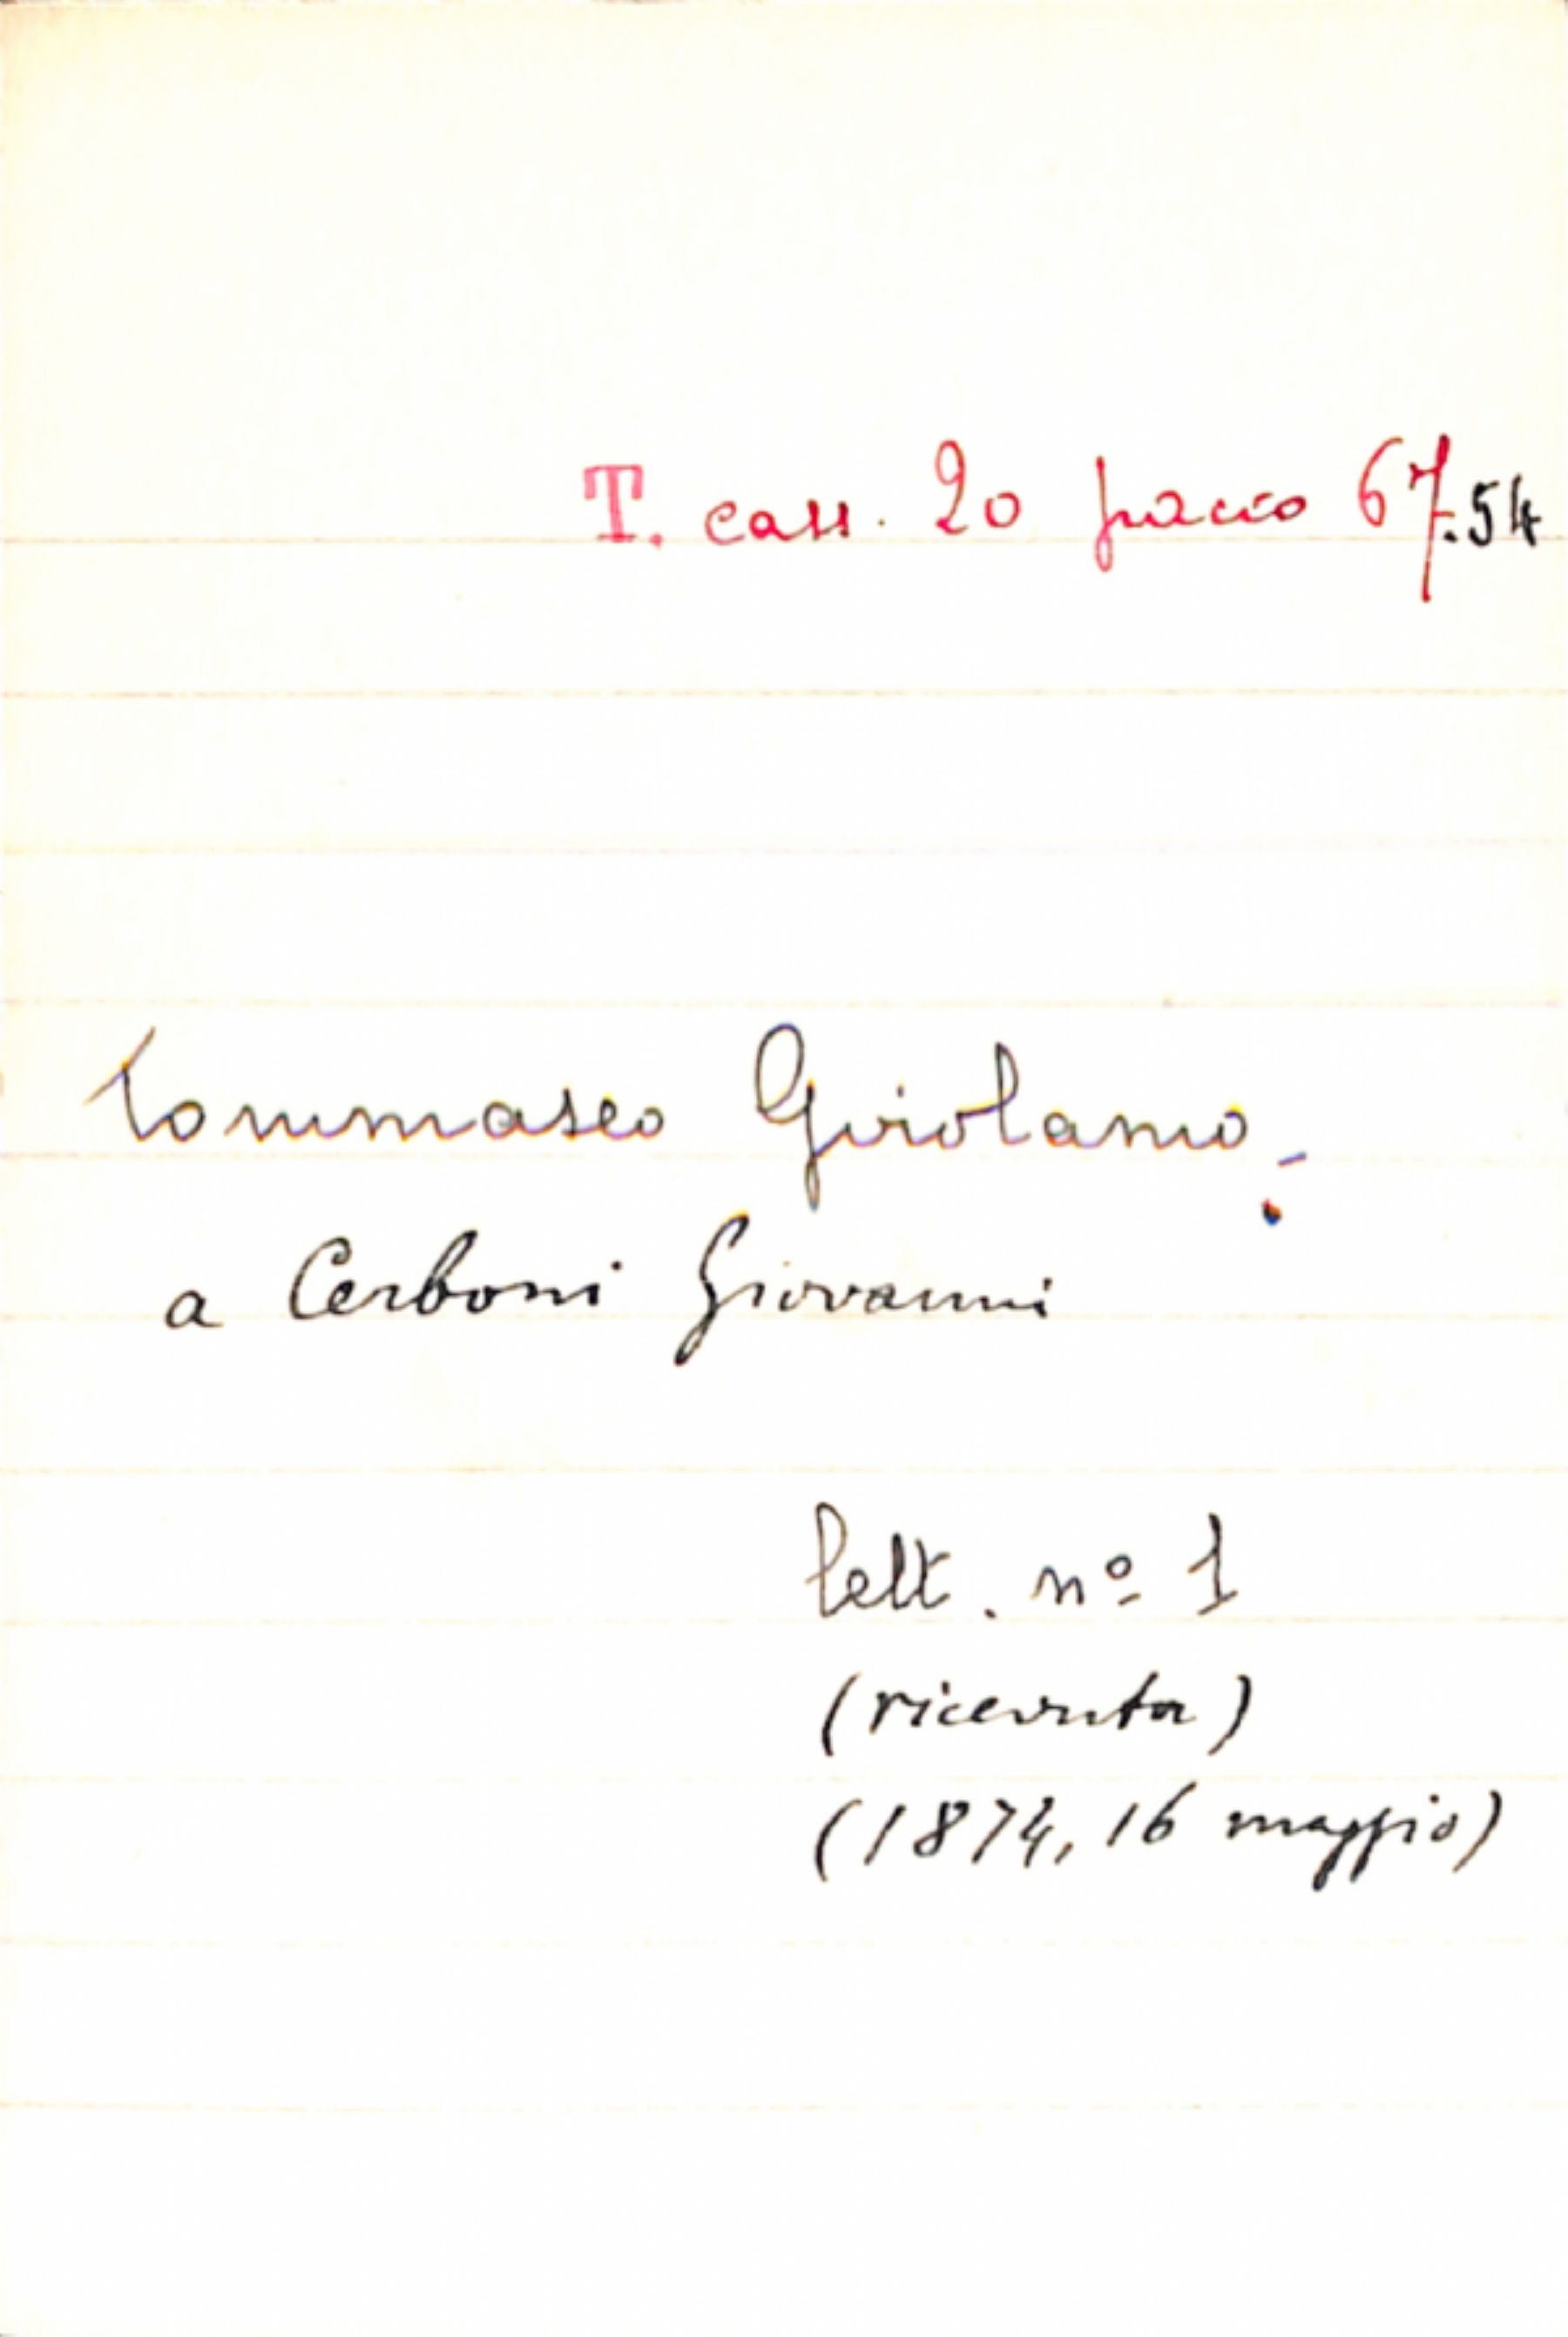 T. cass. 20 pacco 67.54
Tommaseo Girolamo.-
a Cerboni Giovanni
lett. nº 1
(ricevuta)
(1874, 16 maggio)